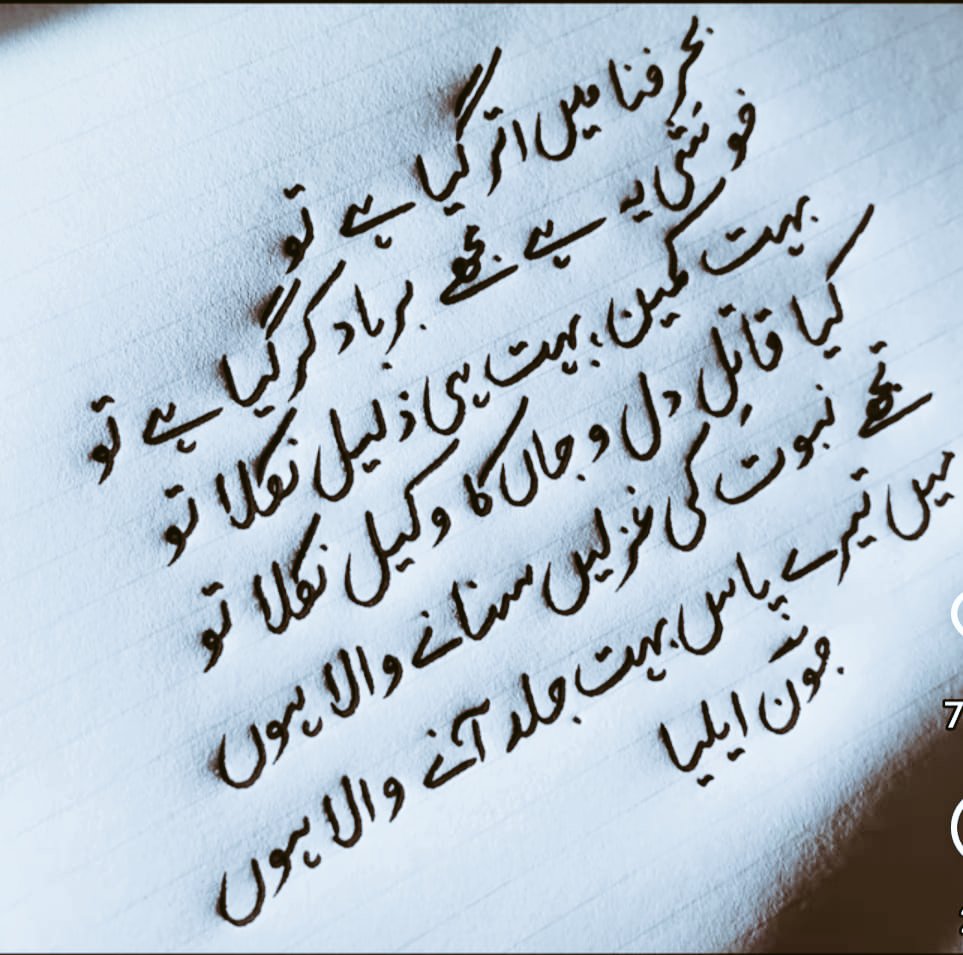 بحرِ فنا میں اتر گیا ہے تو
خوشی یہ ہے مجھے برباد کر گیا ہے تو
بہت کمین، بہت ہی ذلیل نکلا تو
کیا قاتلِ دل و جاں کا وکیل نکلا تو
تجھے نبوت کی غزلیں سنانے والا ہوں
میں تیرے پاس بہت جلد آنے والا ہوں
جون ایلیا
7